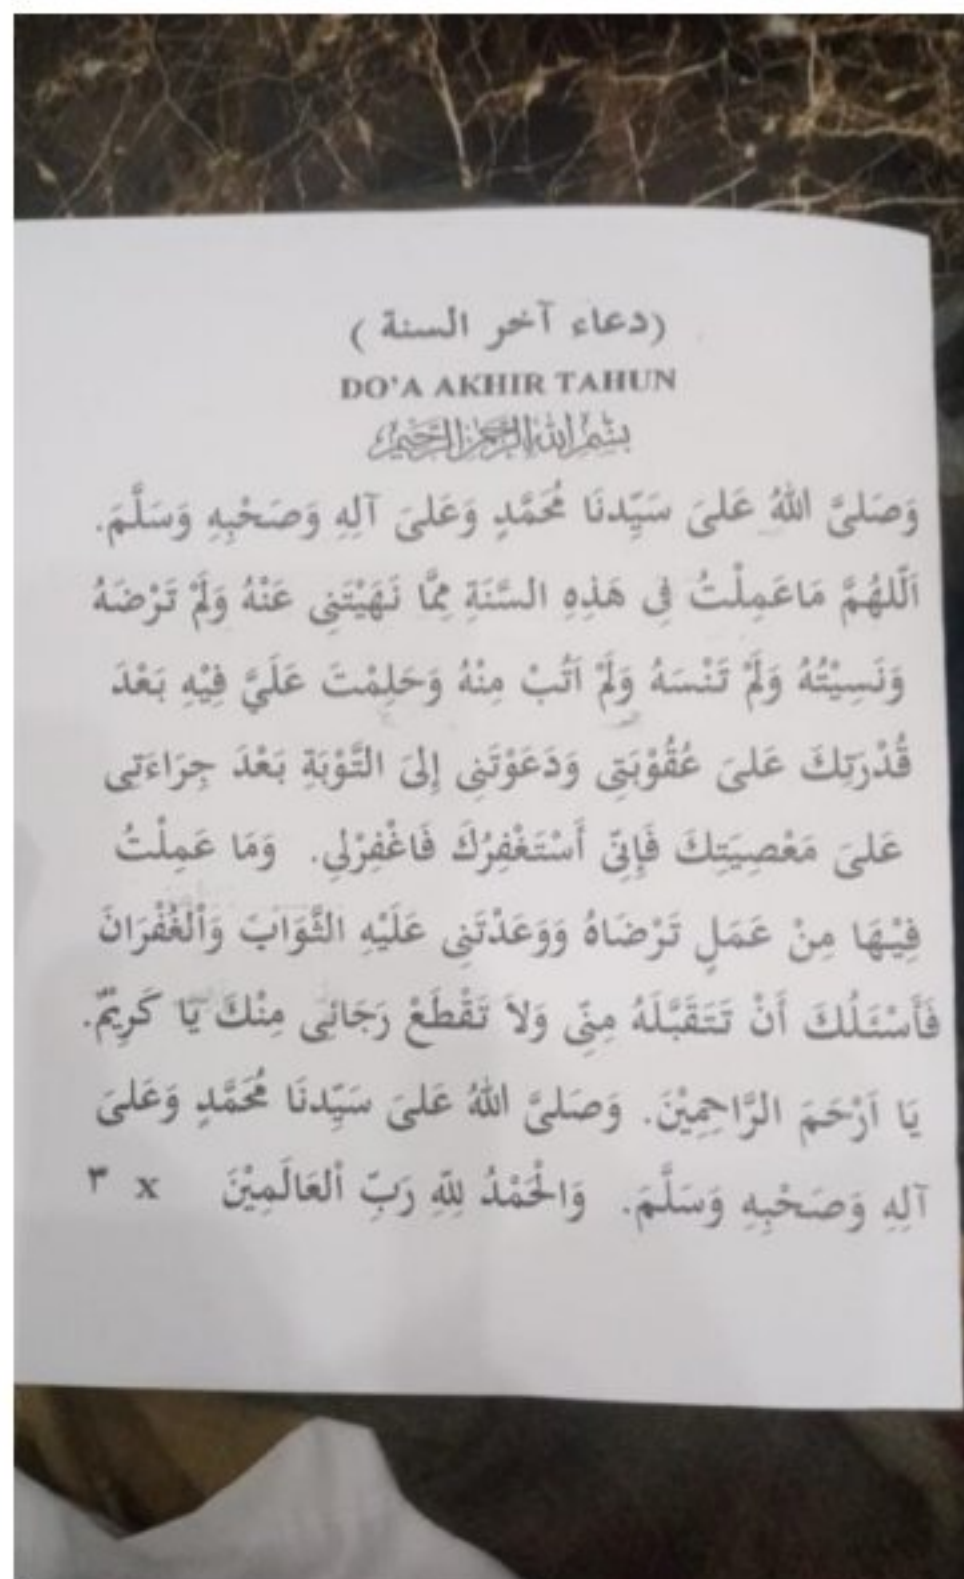 (دعاء آخر السنة )
DO'A AKHIR TAHUN
بِسْمِ اللهِ الرَّحْمٰنِ الرَّحِيْمِ
وَصَلىَّ اللهُ عَلىَ سَيِّدِنَا مُحَمَّدٍ وَعَلىَ آلِهِ وَصَحْبِهِ وَسَلَّمَ.
اَللّٰهُمَّ مَاعَمِلْتُ فِى هَذِهِ السَّنَةِ مِمَّا نَهَيْتَنِى عَنْهُ وَلَمْ تَرْضَهُ
وَنَسِيْتُهُ وَلَمْ تَنْسَهُ وَلَمْ اَتُبْ مِنْهُ وَحَلِمْتَ عَلَيَّ فِيْهِ بَعْدَ
قُدْرَتِكَ عَلىَ عُقُوْبَتِى وَدَعَوْتَنِى إِلىَ التَّوْبَةِ بَعْدَ جِرَاءَتِى
عَلىَ مَعْصِيَتِكَ فَإِنِّى أَسْتَغْفِرُكَ فَاغْفِرْلِي. وَمَا عَمِلْتُ
فِيْهَا مِنْ عَمَلٍ تَرْضَاهُ وَوَعَدْتَنِى عَلَيْهِ الثَّوَابَ وَاْلغُفْرَانَ
فَأَسْئَلُكَ أَنْ تَتَقَبَّلَهُ مِنِّى وَلاَ تَقْطَعْ رَجَائِى مِنْكَ يَا كَرِيْمُ.
يَا اَرْحَمَ الرَّاحِمِيْنَ. وَصَلىَّ اللهُ عَلىَ سَيِّدِنَا مُحَمَّدٍ وَعَلىَ
آلِهِ وَصَحْبِهِ وَسَلَّمَ. وَالْحَمْدُ لِلّهِ رَبِّ اْلعَالَمِيْنَ x ٣